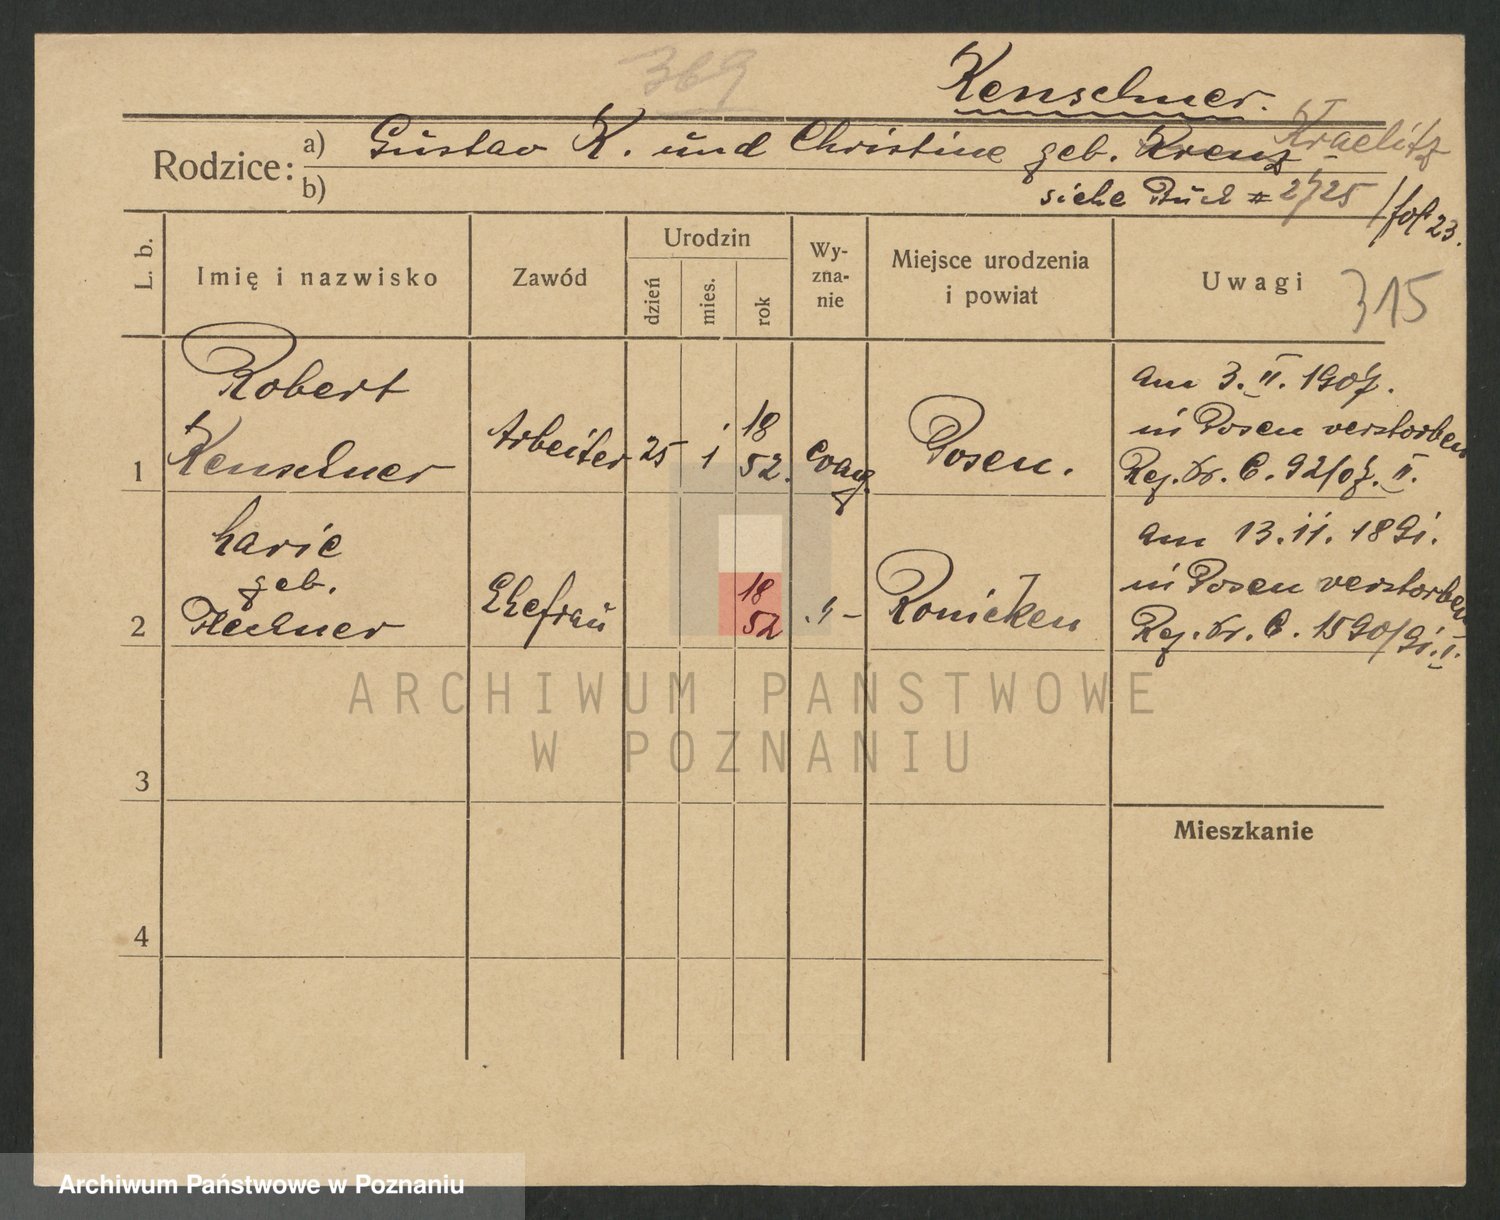 369
Kenschner.
Rodzice: a) Gustav K. und Christine geb. Krenz Kraelitz
b) siehe Buch # 2725 / fol 23.
L. b.
Imię i nazwisko
Zawód
Urodzin
dzień
mies.
rok
Wy-
zna-
nie
Miejsce urodzenia
i powiat
Uwagi
315
Robert
Kenschner
1
Arbeiter
25
1
18
52.
evang.
Posen.
am 3. II. 1907.
in Posen verstorben
Reg. Nr. C. 92/07. II.
geb.
2
Ehefrau
18
52
" –
Ronicken
am 13. 11. 1891.
in Posen verstorben
Reg. Nr. C. 1590/91. I.
3
Mieszkanie
4
ARCHIWUM PAŃSTWOWE
W POZNANIU
Archiwum Państwowe w Poznaniu